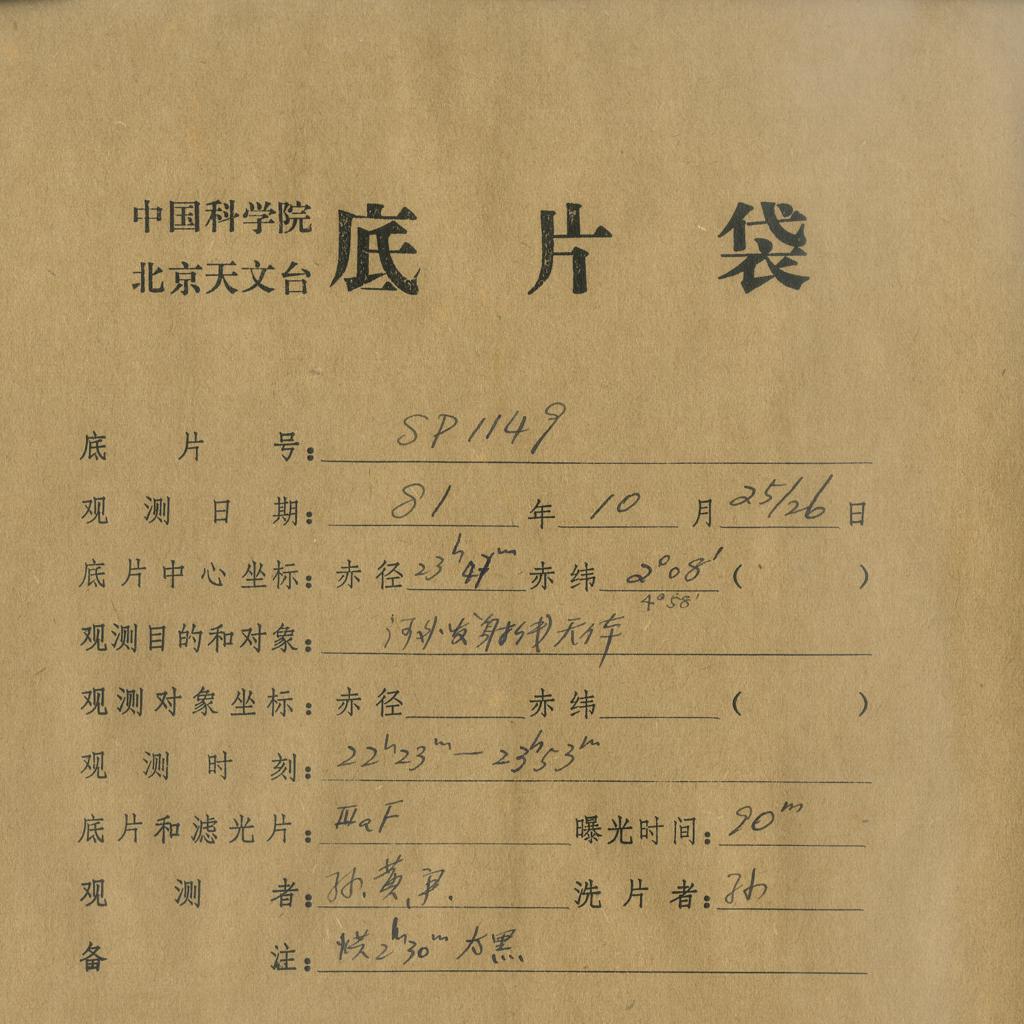 中国科学院
北京天文台
底片袋
底片号：SP1149
观测日期：81年10月25/26日
底片中心坐标：赤径23ʰ47ᵐ赤纬2°08′（ ）
4°58′
观测目的和对象：河外发射线天体
观测对象坐标：赤径 赤纬 （ ）
观测时刻：22ʰ23ᵐ—23ʰ53ᵐ
底片和滤光片：ⅢaF 曝光时间：90ᵐ
观测者：孙.黄. 洗片者：孙
备注：烘2ʰ30ᵐ 太黑